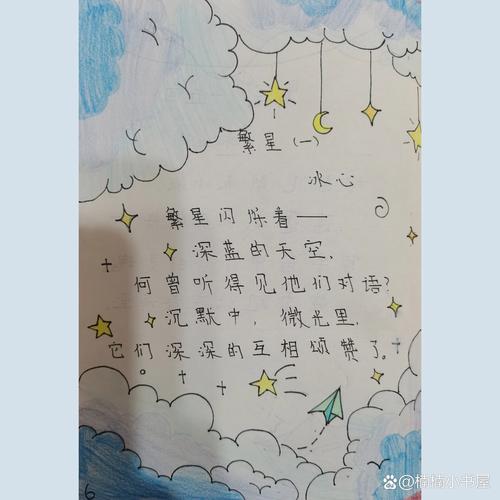 繁星（一）
冰心
繁星闪烁着——
深蓝的天空，
何曾听得见他们对语？
沉默中，微光里，
它们深深的互相颂赞了。
6
@楠楠小书屋